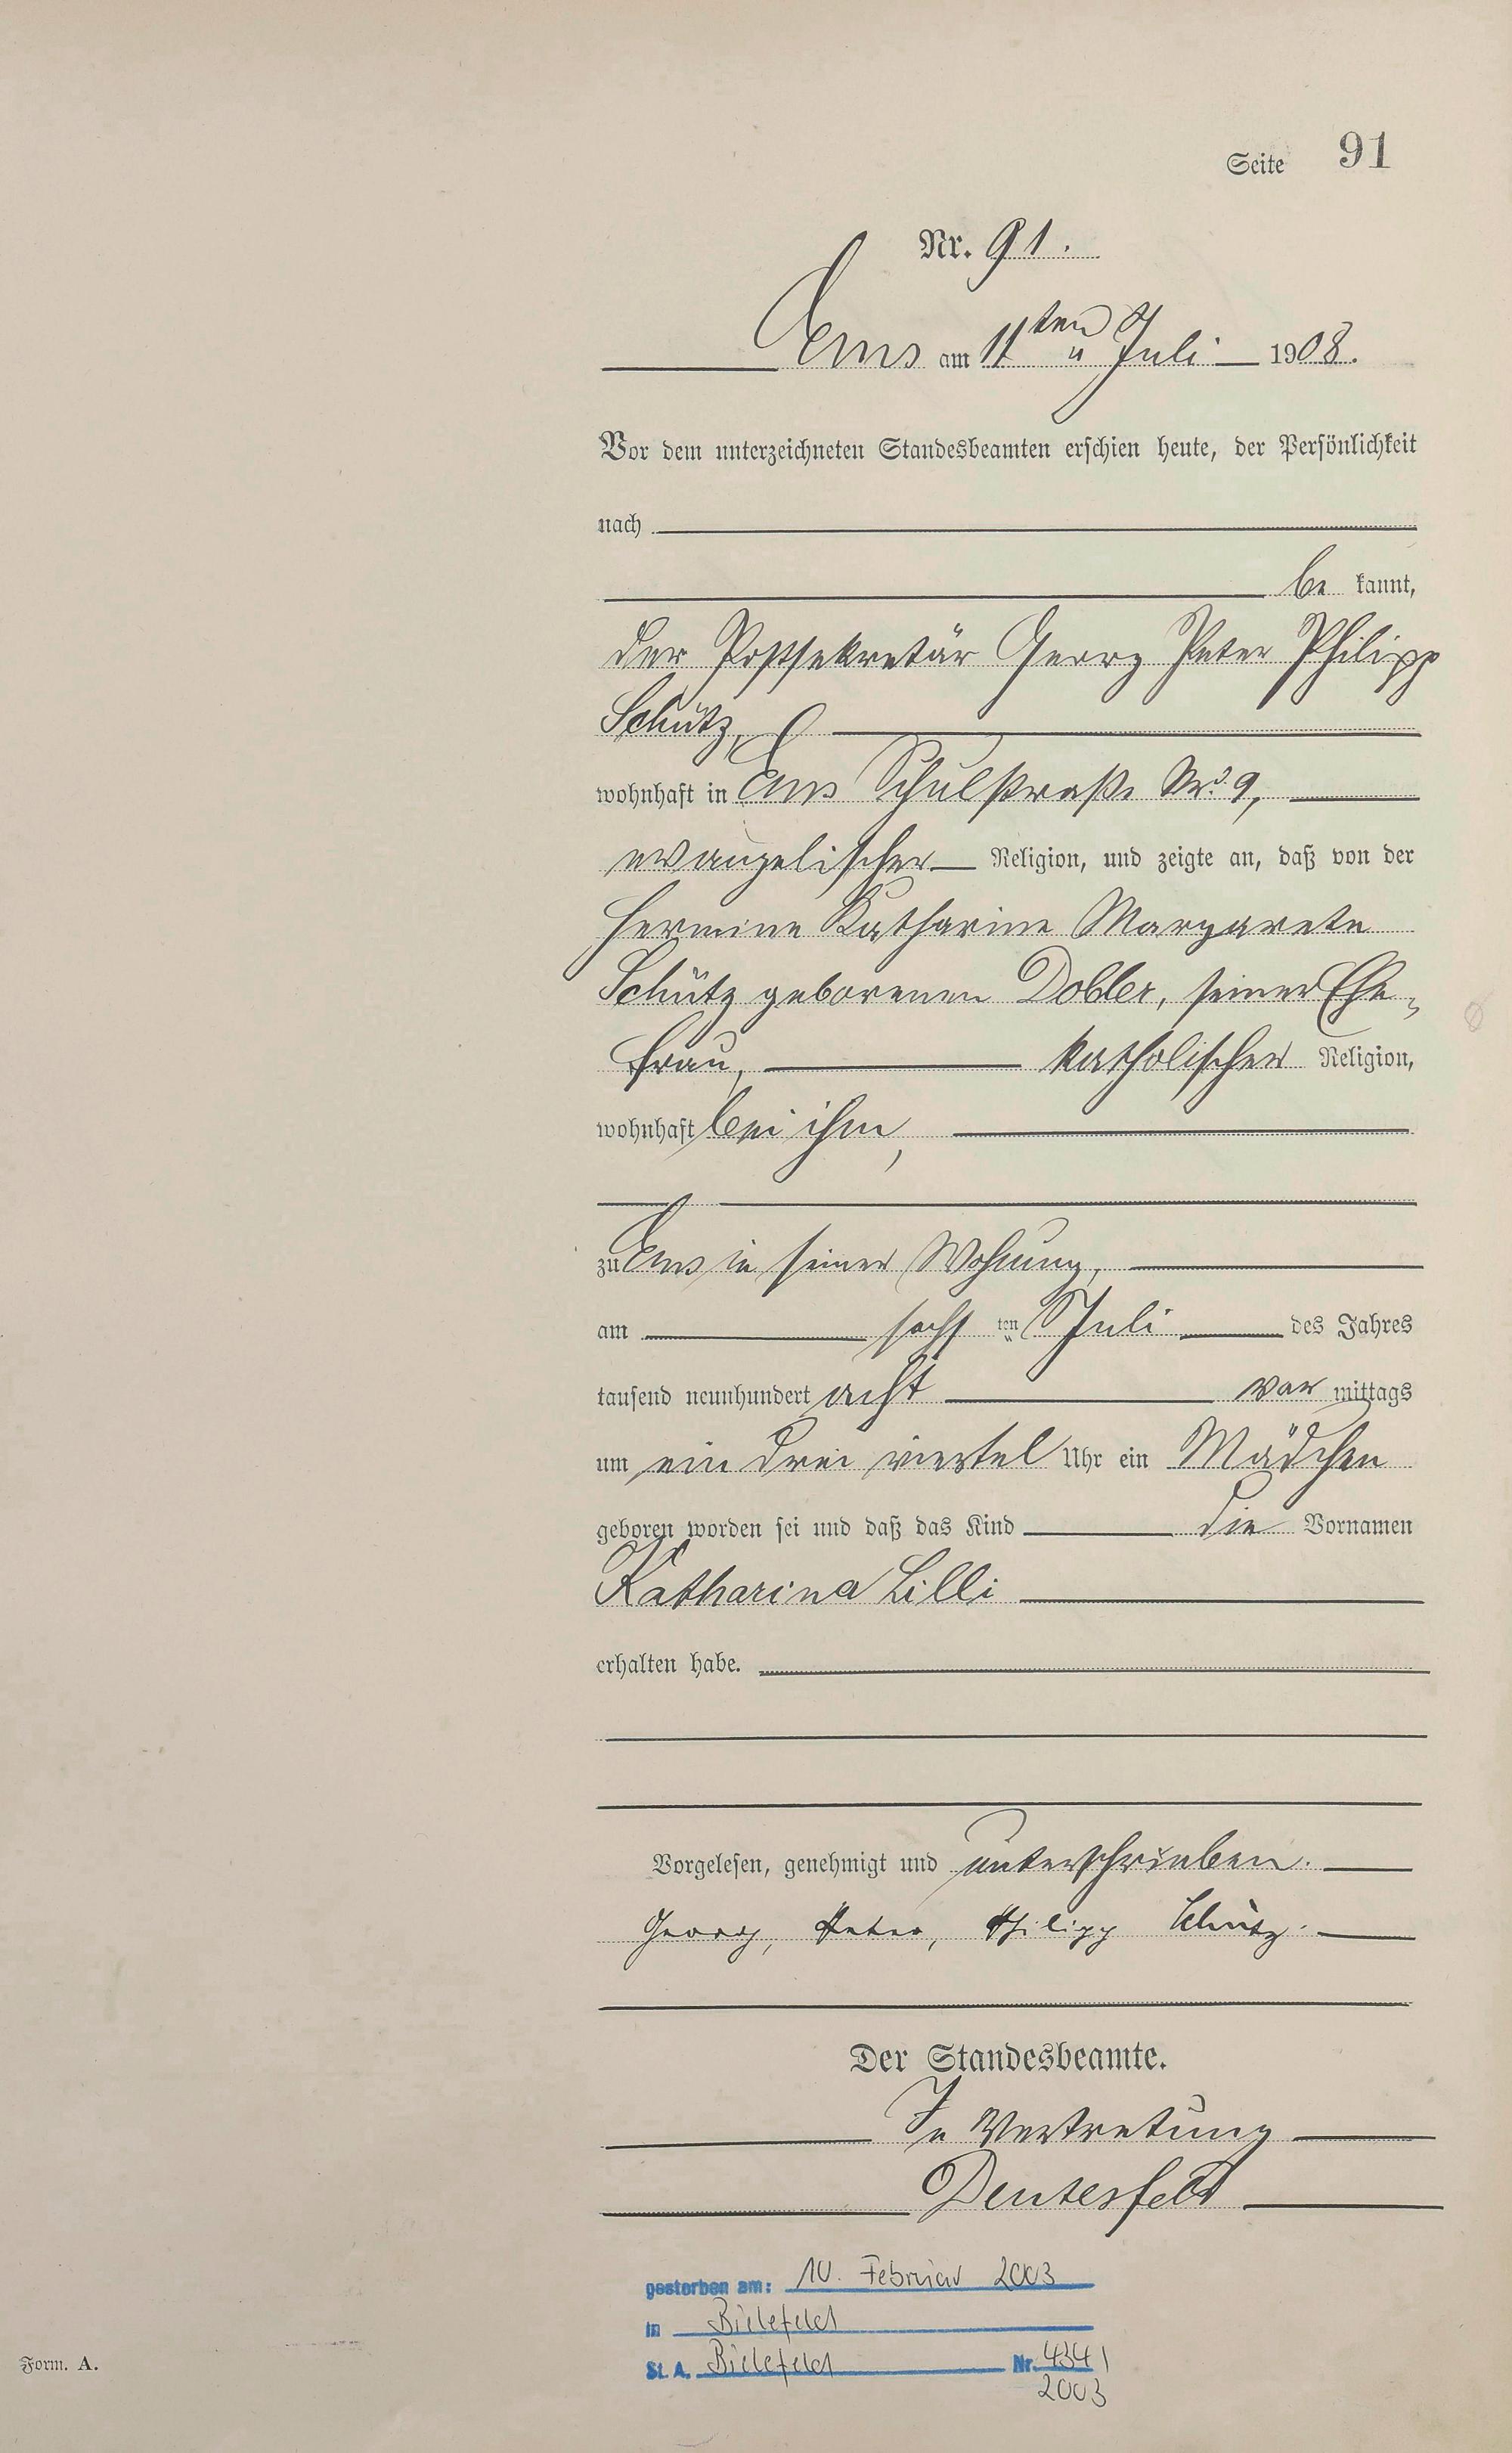 Seite 91
Nr. 91.
Ems am 11ten Juli 1908.
Vor dem unterzeichneten Standesbeamten erschien heute, der Persönlichkeit
nach
be kannt,
der Postsekretär Georg Peter Philipp
Schütz,
wohnhaft in Ems Schulstraße No. 9,
evangelischer Religion, und zeigte an, daß von der
Hermine Katharine Margarete
Schütz geborenen Dobler, seiner Ehe-
frau, katholischer Religion,
wohnhaft bei ihm,
zu Ems in seiner Wohnung,
am sechs ten Juli des Jahres
tausend neunhundert acht vor mittags
um ein drei viertel Uhr ein Mädchen
geboren worden sei und daß das Kind die Vornamen
Katharina Lilli
erhalten habe.
Vorgelesen, genehmigt und unterschrieben.
Georg, Peter, Philipp Schütz.
Der Standesbeamte.
In Vertretung
Deutesfeld
gestorben am: 10. Februar 2003
in Bielefeld
St. A. Bielefeld Nr. 434/
2003
Form. A.